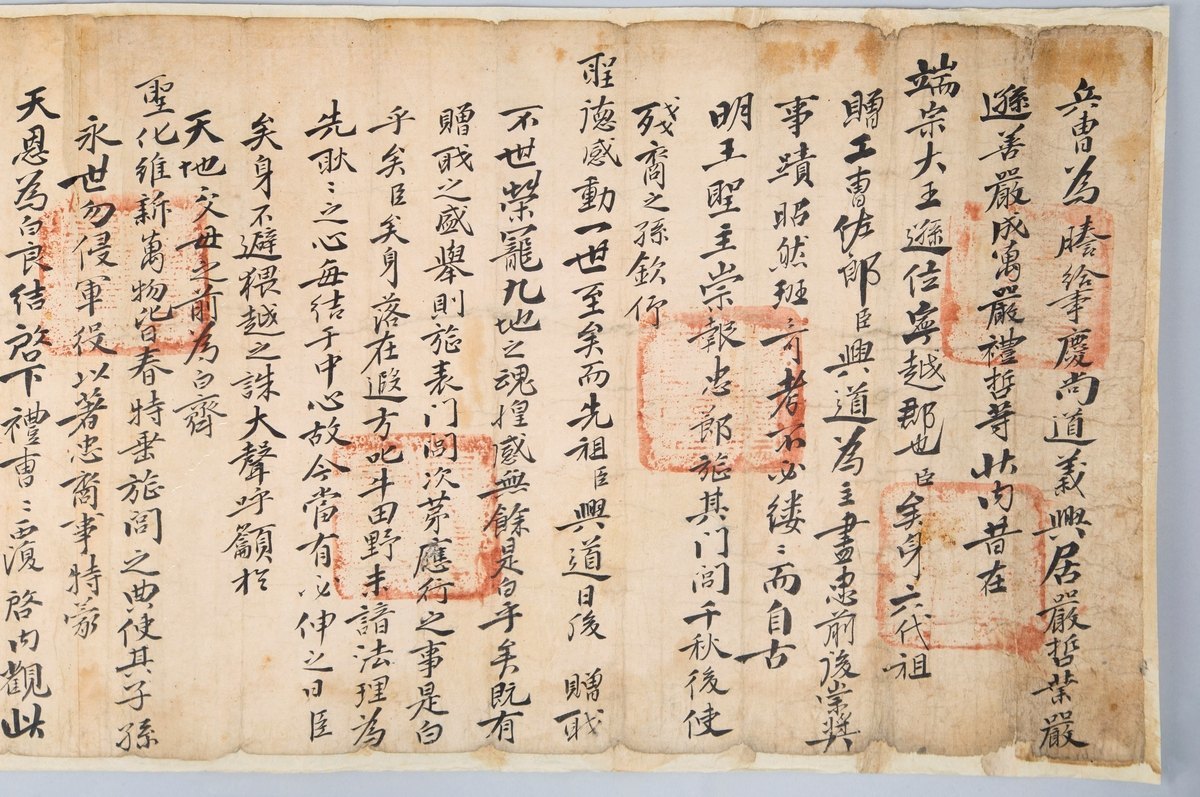 兵曹爲謄給事慶尚道義興居嚴哲業嚴
遜善嚴成萬嚴禮哲等狀內昔在
端宗大王遜位寧越郡也臣矣身六代祖
贈工曹佐郎臣興道為主盡忠前後崇奬
事蹟昭然班班可考不必縷〻而自古
明王聖主崇報忠郞旌其門閭千秋後使
殘裔之孫欽仰
聖德感動一世至矣而先祖臣興道日後 贈職
不世榮寵九地之魂惶感無餘是白乎矣既有
贈職之盛舉則旌表门閭次苐應行之事是白
乎矣臣矣身落在遐方叱牛田野未諳法理為
先耿〻之心每結于中心故今當有必伸之日臣
矣身不避猥越之誅大聲呼籲於
天地父母之前為白齊
聖化維新萬物皆春特垂旌閭之典使其子孫
永世勿侵軍役以著忠裔事特蒙
天恩為白良結啓下禮曹〻覆啓內觀此